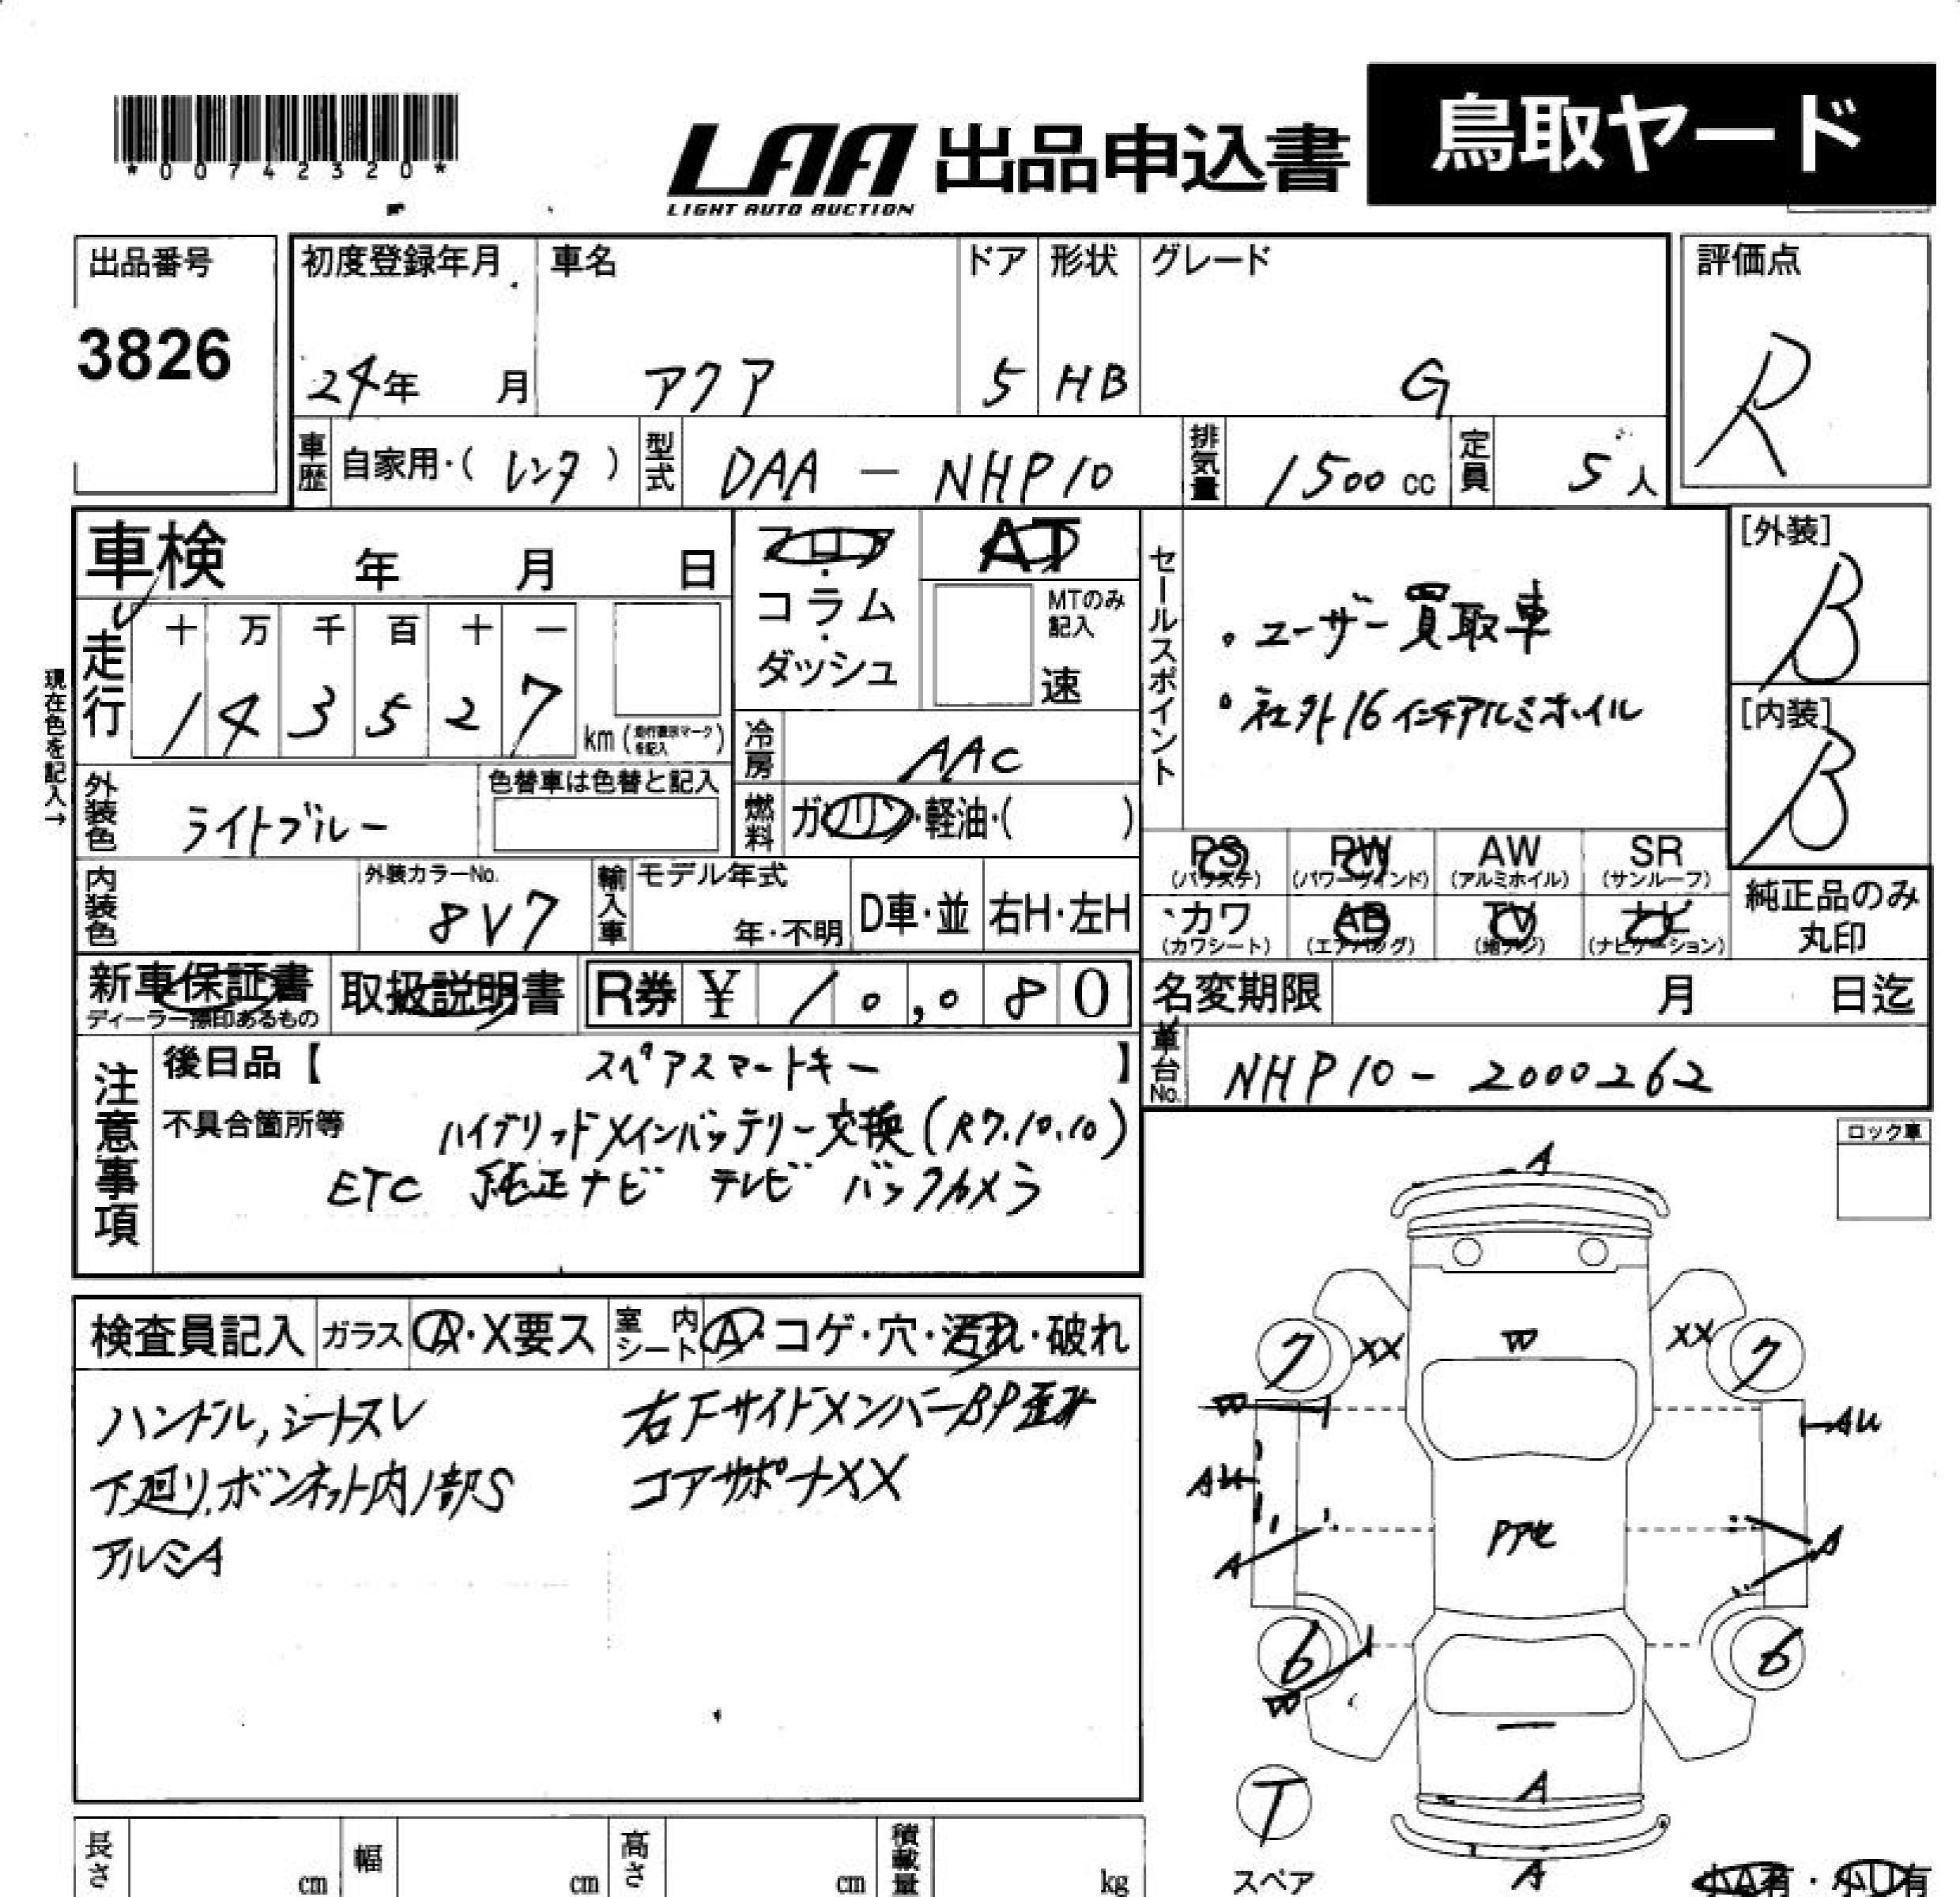 *00742320*
LAA 出品申込書 鳥取ヤード
LIGHT AUTO AUCTION
出品番号 初度登録年月 車名 ドア 形状 グレード 評価点
3826 24年 月 アクア 5 HB G R
車歴 自家用・(レンタ) 型式 DAA - NHP10 排気量 1500cc 定員 5人
車検 年 月 日 フロア・コラム・ダッシュ AT
MTのみ記入 速
セールスポイント
・ユーザー買取車
・社外16インチアルミホイル
[外装] B
[内装] B
現在色を記入→
走行 十 万 千 百 十 一
1 4 3 5 2 7 km(走行表示マークを記入)
冷房 AAC
外装色 ライトブルー 色替車は色替と記入
燃料 ガソリン・軽油・( )
内装色 外装カラーNo. 8V7 輸入車 モデル年式 年・不明 D車・並 右H・左H
PS(パワステ) PW(パワーウィンド) AW(アルミホイル) SR(サンルーフ)
カワ(カワシート) AB(エアバッグ) TV(地デジ) ナビ(ナビゲーション)
純正品のみ丸印
新車保証書 取扱説明書 R券 ¥ 10,080
ディーラー捺印あるもの
名変期限 月 日迄
車台No. NHP10-2000262
注意事項
後日品【 スペアスマートキー 】
不具合箇所等 ハイブリッドメインバッテリー交換(R7.10.10)
ETC 純正ナビ テレビ バックカメラ
ロック車
検査員記入 ガラス A・X要ス 室内シート A・コゲ・穴・汚れ・破れ
ハンドル,シートスレ 右Fサイドメンバー BP歪み
下廻り,ボンネット内ノ部S コアサポートXX
アルミA
A
7 XX W XX 7
W AU
AU
A Pアセ A
6 6
W
A
T
スペア A
小A有・小U有
長さ cm 幅 cm 高さ cm 積載量 kg